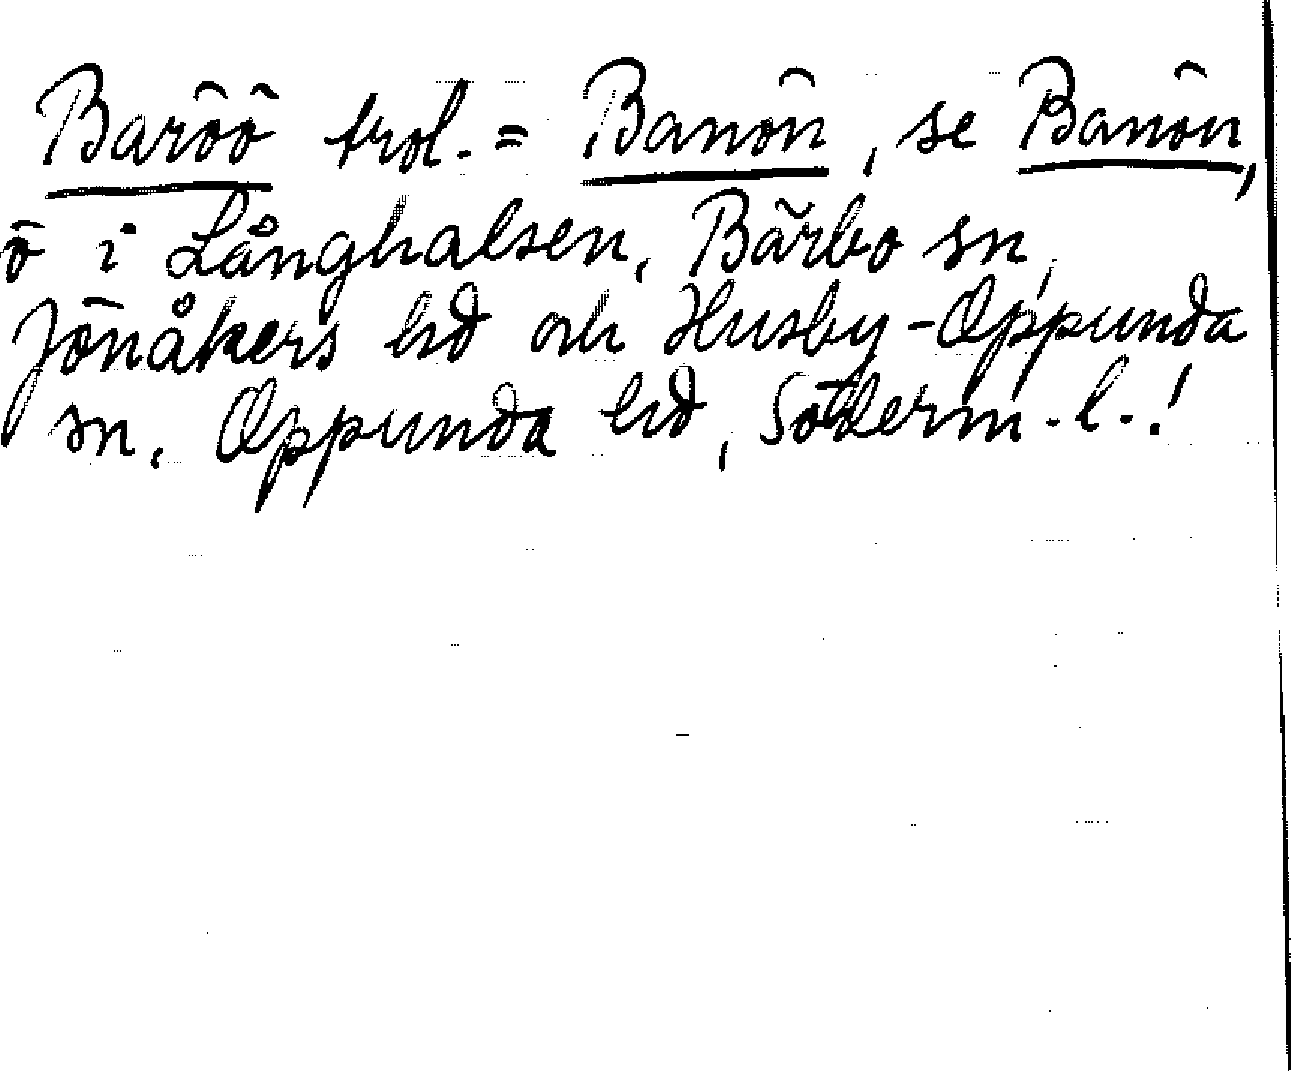 Baröö trol. = Banön, se Banön,
ö i Långhalsen, Bärbo sn,
Jönåkers hd och Husby-Oppunda
sn, Oppunda hd, Söderm.l.!